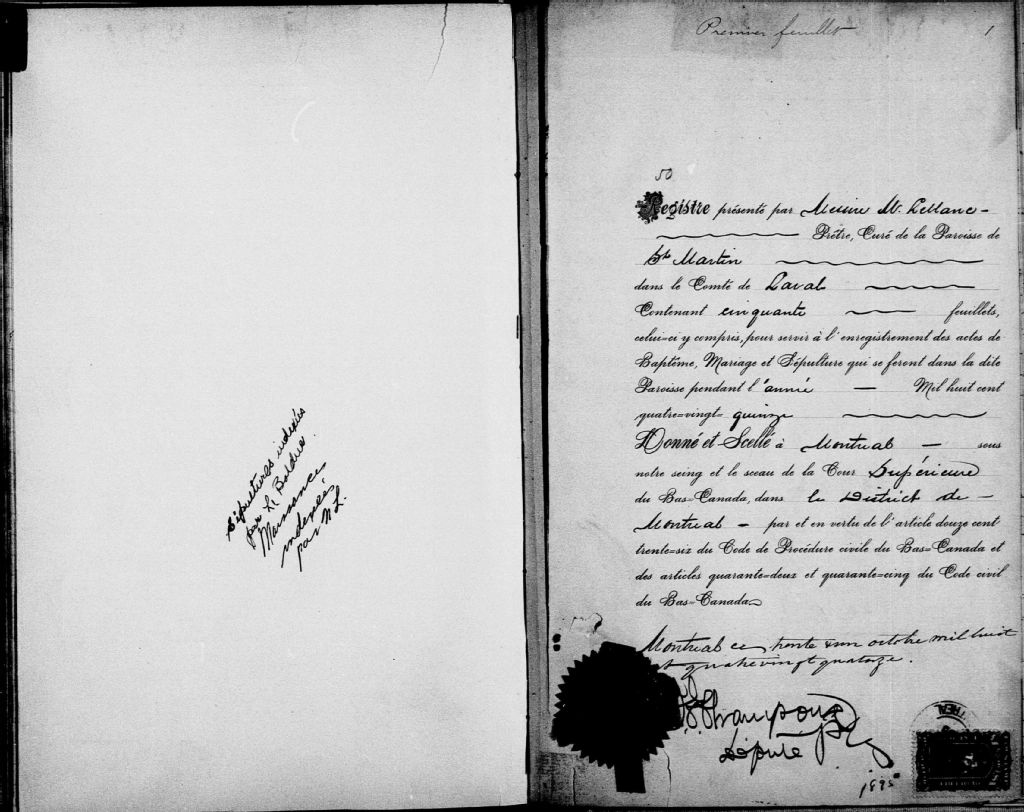 Sépultures indexées
par L. Bolduc.
Naissances
indexées
par N. L.
Premier feuillet
1
50
Registre présenté par Messire M. Leblanc -
Prêtre, Curé de la Paroisse de
St Martin
dans le Comté de Laval
Contenant cinquante feuillets,
celui=ci y compris, pour servir à l'enregistrement des actes de
Baptême, Mariage et Sépulture qui se feront dans la dite
Paroisse pendant l'année — Mil huit cent
quatre=vingt= quinze
Donné et Scellé à Montreal — sous
notre seing et le sceau de la Cour Supérieure
du Bas=Canada, dans le District de —
Montreal — par et en vertu de l'article douze cent
trente=six du Code de Procédure civile du Bas=Canada et
des articles quarante=deux et quarante=cinq du Code civil
du Bas=Canada
Montreal ce trente & un octobre mil huit
quatrevingt quatorze.
Député
1895